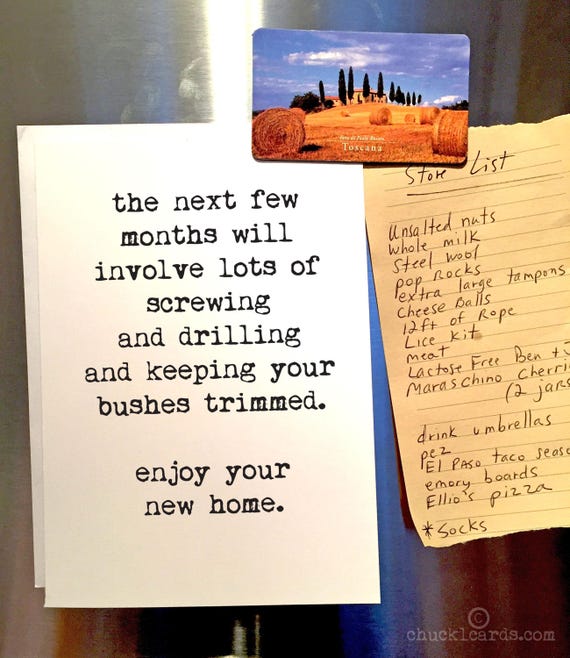 Toscana
the next few
months will
involve lots of
screwing
and drilling
and keeping your
bushes trimmed.
enjoy your
new home.
Store List
Unsalted nuts
whole milk
Steel wool
pop Rocks
extra large tampons
Cheese Balls
12ft of Rope
Lice Kit
meat
Lactose Free Ben +
Maraschino Cherri
(2 jars
drink umbrellas
pez
El Paso taco seas
emory boards
Ellio's pizza
*Socks
©
chucklcards.com